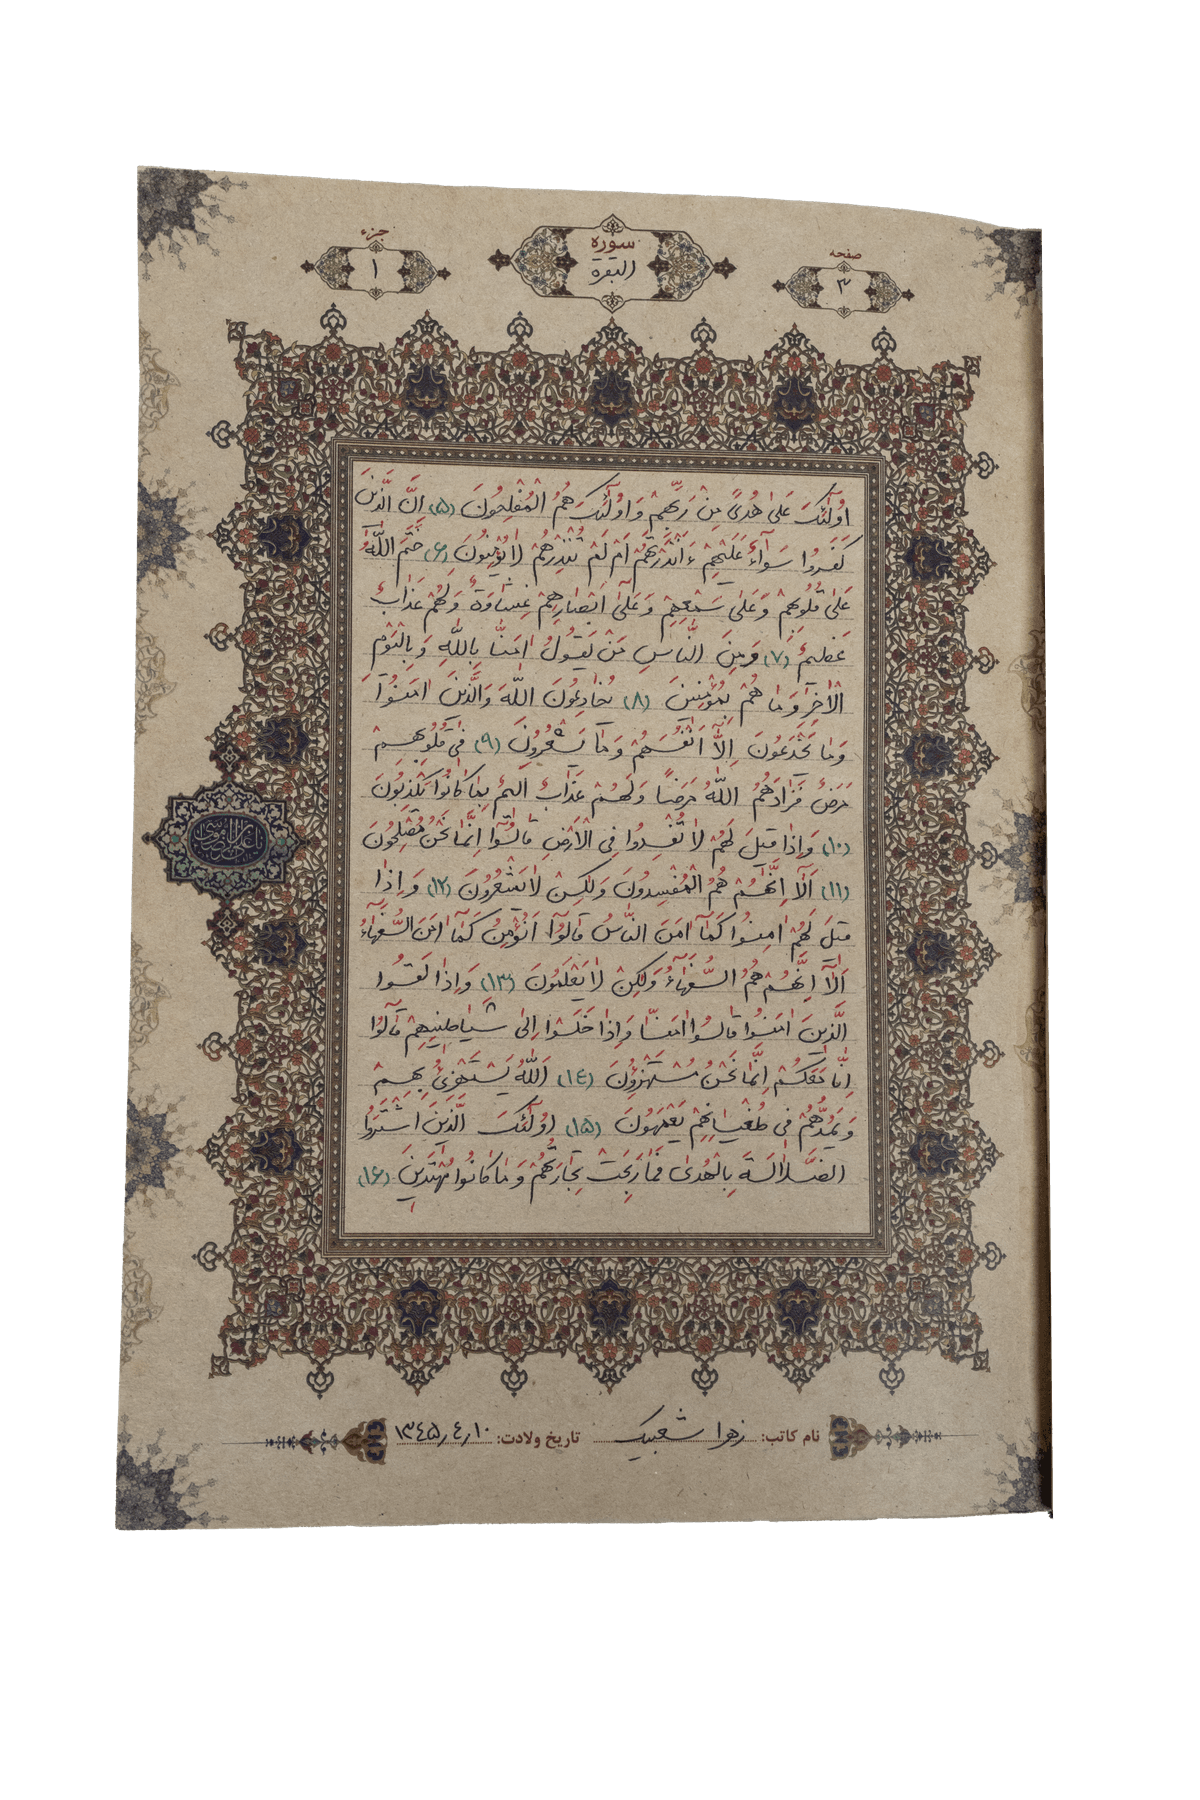 صفحه
۳
سورة
البقرة
جزء
۱
اُولٰٓئِكَ عَلىٰ هُدًى مِنْ رَبِّهِمْ وَ اُولٰٓئِكَ هُمُ الْمُفْلِحُونَ (۵) اِنَّ الَّذينَ
كَفَرُوا سَوَآءٌ عَلَيْهِمْ ءَاَنْذَرْتَهُمْ اَمْ لَمْ تُنْذِرْهُمْ لايُؤْمِنُونَ (۶) خَتَمَ اللّٰهُ
عَلىٰ قُلُوبِهِمْ وَ عَلىٰ سَمْعِهِمْ وَ عَلىٰٓ اَبْصارِهِمْ غِشاوَةٌ وَ لَهُمْ عَذابٌ
عَظيمٌ (۷) وَ مِنَ النّاسِ مَنْ يَقُولُ اٰمَنّا بِاللّٰهِ وَ بِالْيَوْمِ
الْاٰخِرِ وَ ما هُمْ بِمُؤْمِنينَ (۸) يُخادِعُونَ اللّٰهَ وَ الَّذينَ اٰمَنُوا
وَ ما يَخْدَعُونَ اِلّآ اَنْفُسَهُمْ وَ ما يَشْعُرُونَ (۹) في قُلُوبِهِمْ
مَرَضٌ فَزادَهُمُ اللّٰهُ مَرَضًا وَ لَهُمْ عَذابٌ اَليمٌ بِما كانُوا يَكْذِبُونَ
(۱۰) وَ اِذا قيلَ لَهُمْ لا تُفْسِدُوا فِي الْاَرْضِ قالُوٓا اِنَّما نَحْنُ مُصْلِحُونَ
(۱۱) اَلآ اِنَّهُمْ هُمُ الْمُفْسِدُونَ وَ لٰكِنْ لا يَشْعُرُونَ (۱۲) وَ اِذا
قيلَ لَهُمْ اٰمِنُوا كَمآ اٰمَنَ النّاسُ قالُوٓا اَنُؤْمِنُ كَمآ اٰمَنَ السُّفَهآءُ
اَلآ اِنَّهُمْ هُمُ السُّفَهآءُ وَ لٰكِنْ لا يَعْلَمُونَ (۱۳) وَ اِذا لَقُوا
الَّذينَ اٰمَنُوا قالُوا اٰمَنّا وَ اِذا خَلَوْا اِلىٰ شَياطينِهِمْ قالُوٓا
اِنّا مَعَكُمْ اِنَّما نَحْنُ مُسْتَهْزِؤُنَ (۱٤) اَللّٰهُ يَسْتَهْزِئُ بِهِمْ
وَ يَمُدُّهُمْ في طُغْيانِهِمْ يَعْمَهُونَ (۱۵) اُولٰٓئِكَ الَّذينَ اشْتَرَوُا
الضَّلالَةَ بِالْهُدىٰ فَما رَبِحَتْ تِجارَتُهُمْ وَ ما كانُوا مُهْتَدينَ (۱۶)
نام کاتب: زهرا شعبیک تاریخ ولادت: ۱۳٤۵٫٤٫۱۰